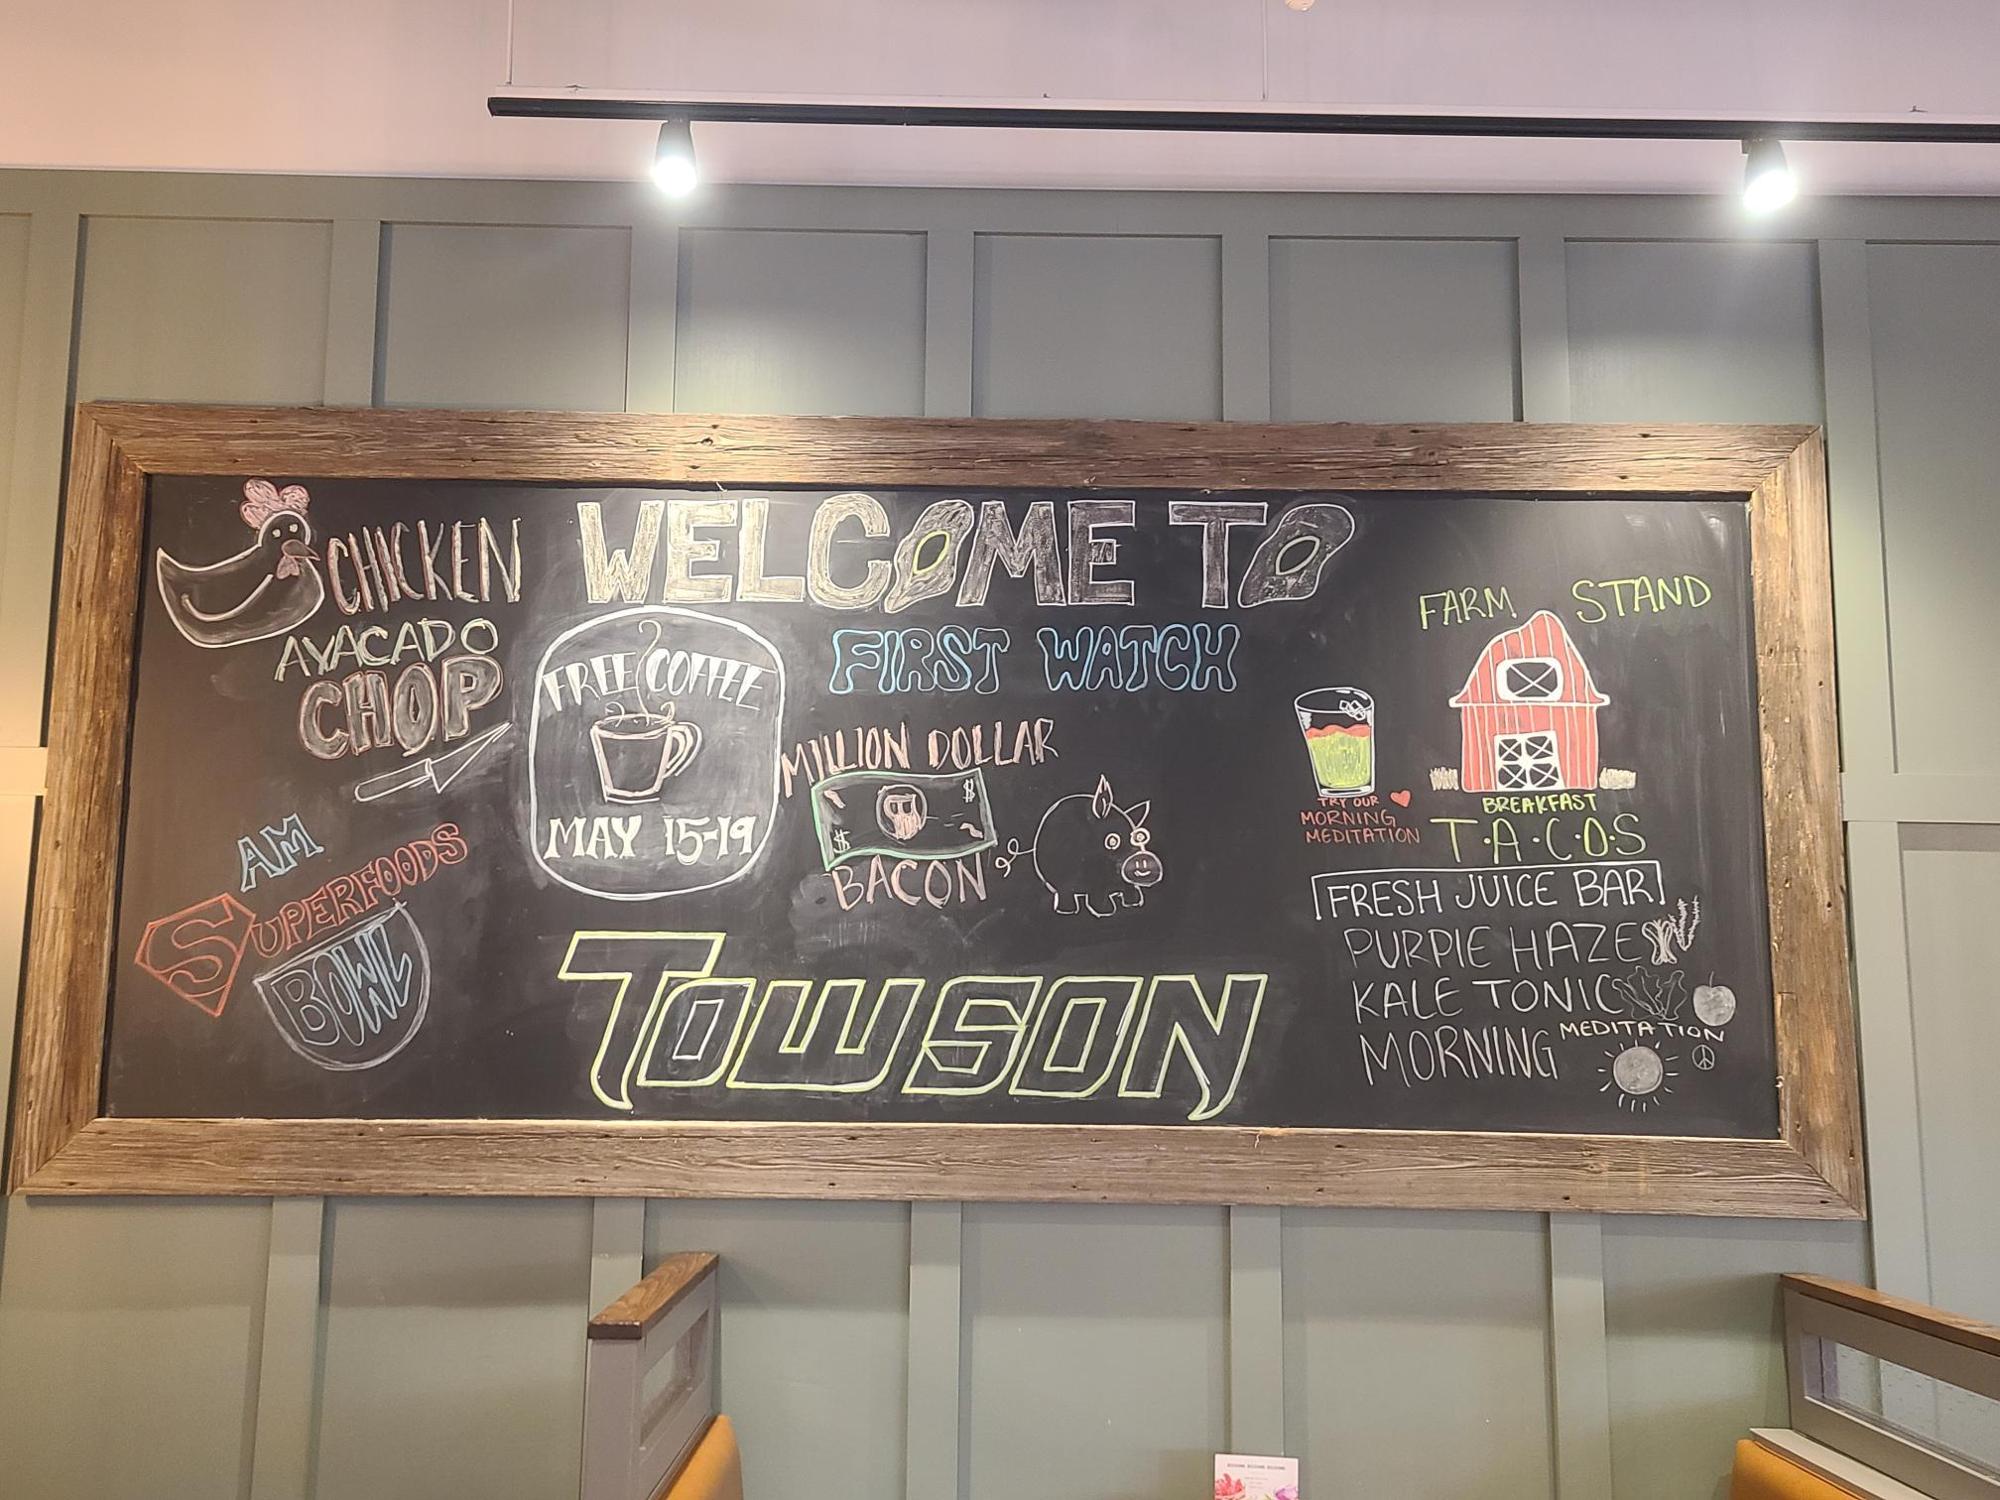 WELCOME TO
FIRST WATCH
CHICKEN
AVACADO
CHOP
FREE COFFEE
MAY 15-19
MILLION DOLLAR
$
$
BACON
AM
SUPERFOODS
BOWL
TOWSON
FARM STAND
BREAKFAST
T·A·C·O·S
TRY OUR
MORNING
MEDITATION
FRESH JUICE BAR
PURPLE HAZE
KALE TONIC
MORNING MEDITATION